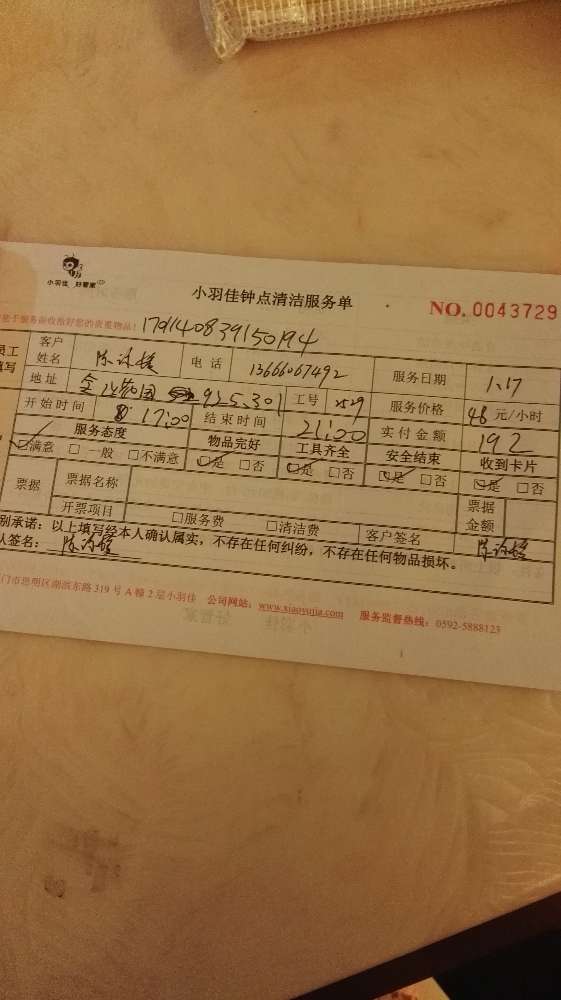 小羽佳 好管家
小羽佳钟点清洁服务单
NO. 0043729
于服务前收拾好您的贵重物品！ 179140839150194
员工填写
客户姓名 陈 电话 13666067492 服务日期 1.17
地址 925.301 工号 2529 服务价格 48 元/小时
开始时间 17:00 结束时间 21:00 实付金额 192
服务态度 物品完好 工具齐全 安全结束 收到卡片
☑满意 □一般 □不满意 ☑是 □否 ☑是 □否 ☑是 □否 ☑是 □否
票据 票据名称 票据金额
开票项目 □服务费 □清洁费 客户签名 陈
别承诺：以上填写经本人确认属实，不存在任何纠纷，不存在任何物品损坏。
人签名： 陈
门市思明区湖滨东路 319 号 A 幢 2 层小羽佳 公司网站：www.xiaoyujia.com 服务监督热线：0592-5888123